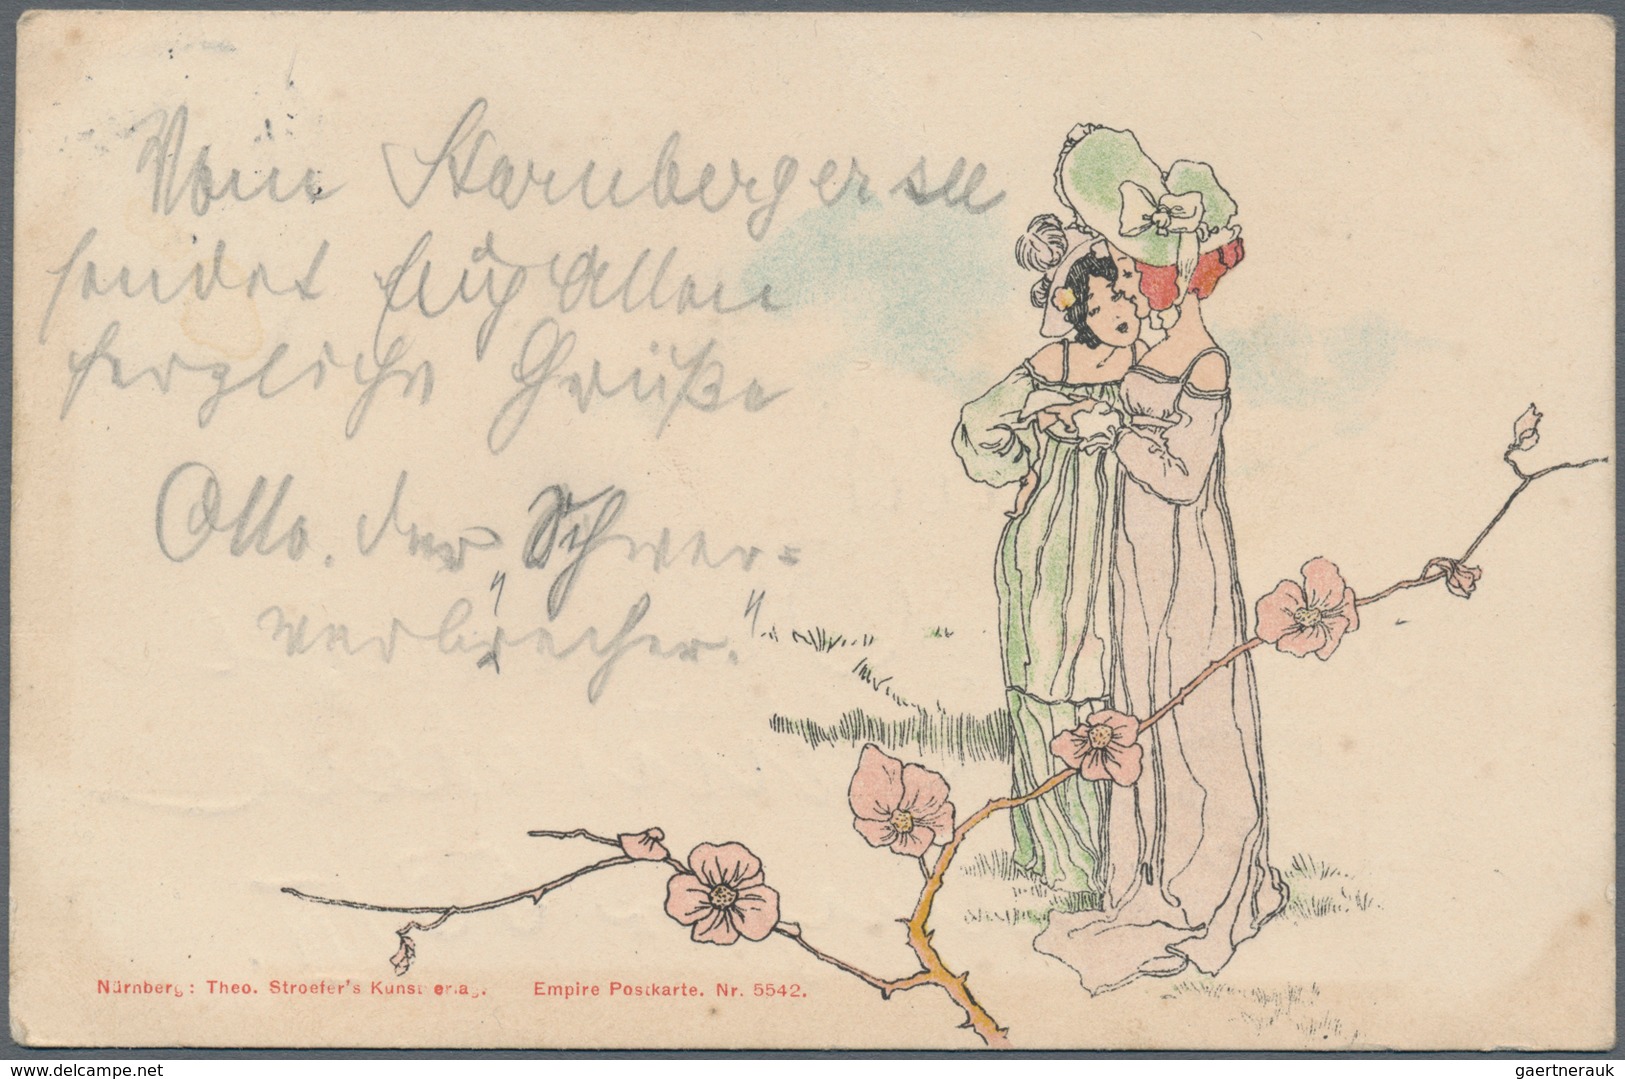 Vom Starnbergersee
sendet Euch Allen
herzliche Grüße
Otto. der „Schwer-
verbrecher."
Nürnberg: Theo. Stroefer's Kunstverlag. Empire Postkarte. Nr. 5542.
www.delcampe.net
gaertnerauk